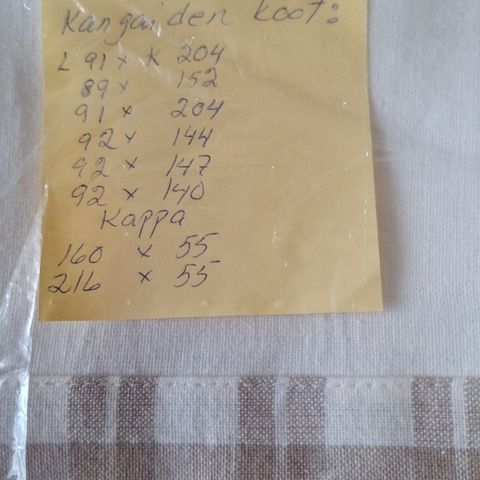 Kangaiden koot:
L 91 x K 204
89 x 152
91 x 204
92 x 144
92 x 147
92 x 140
Kappa
160 x 55
216 x 55